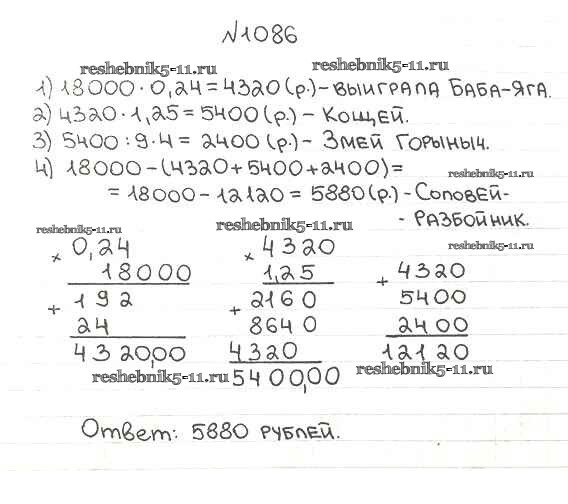 №1086
reshebnik5-11.ru reshebnik5-11.ru
1) 18000 · 0,24 = 4320 (р.) - ВЫИГРАЛА БАБА-ЯГА.
2) 4320 · 1,25 = 5400 (р.) - КОЩЕЙ.
3) 5400 : 9 · 4 = 2400 (р.) - ЗМЕЙ ГОРЫНЫЧ.
4) 18000 - (4320 + 5400 + 2400) =
reshebnik5-11.ru
= 18000 - 12120 = 5880 (р.) - СОЛОВЕЙ-
- РАЗБОЙНИК.
reshebnik5-11.ru reshebnik5-11.ru
reshebnik5-11.ru
× 0,24
18000
+ 192
24
4320,00
× 4320
1,25
+ 2160 0
8640
4320
5400,00
+ 4320
5400
2400
12120
reshebnik5-11.ru reshebnik5-11.ru
Ответ: 5880 РУБЛЕЙ.